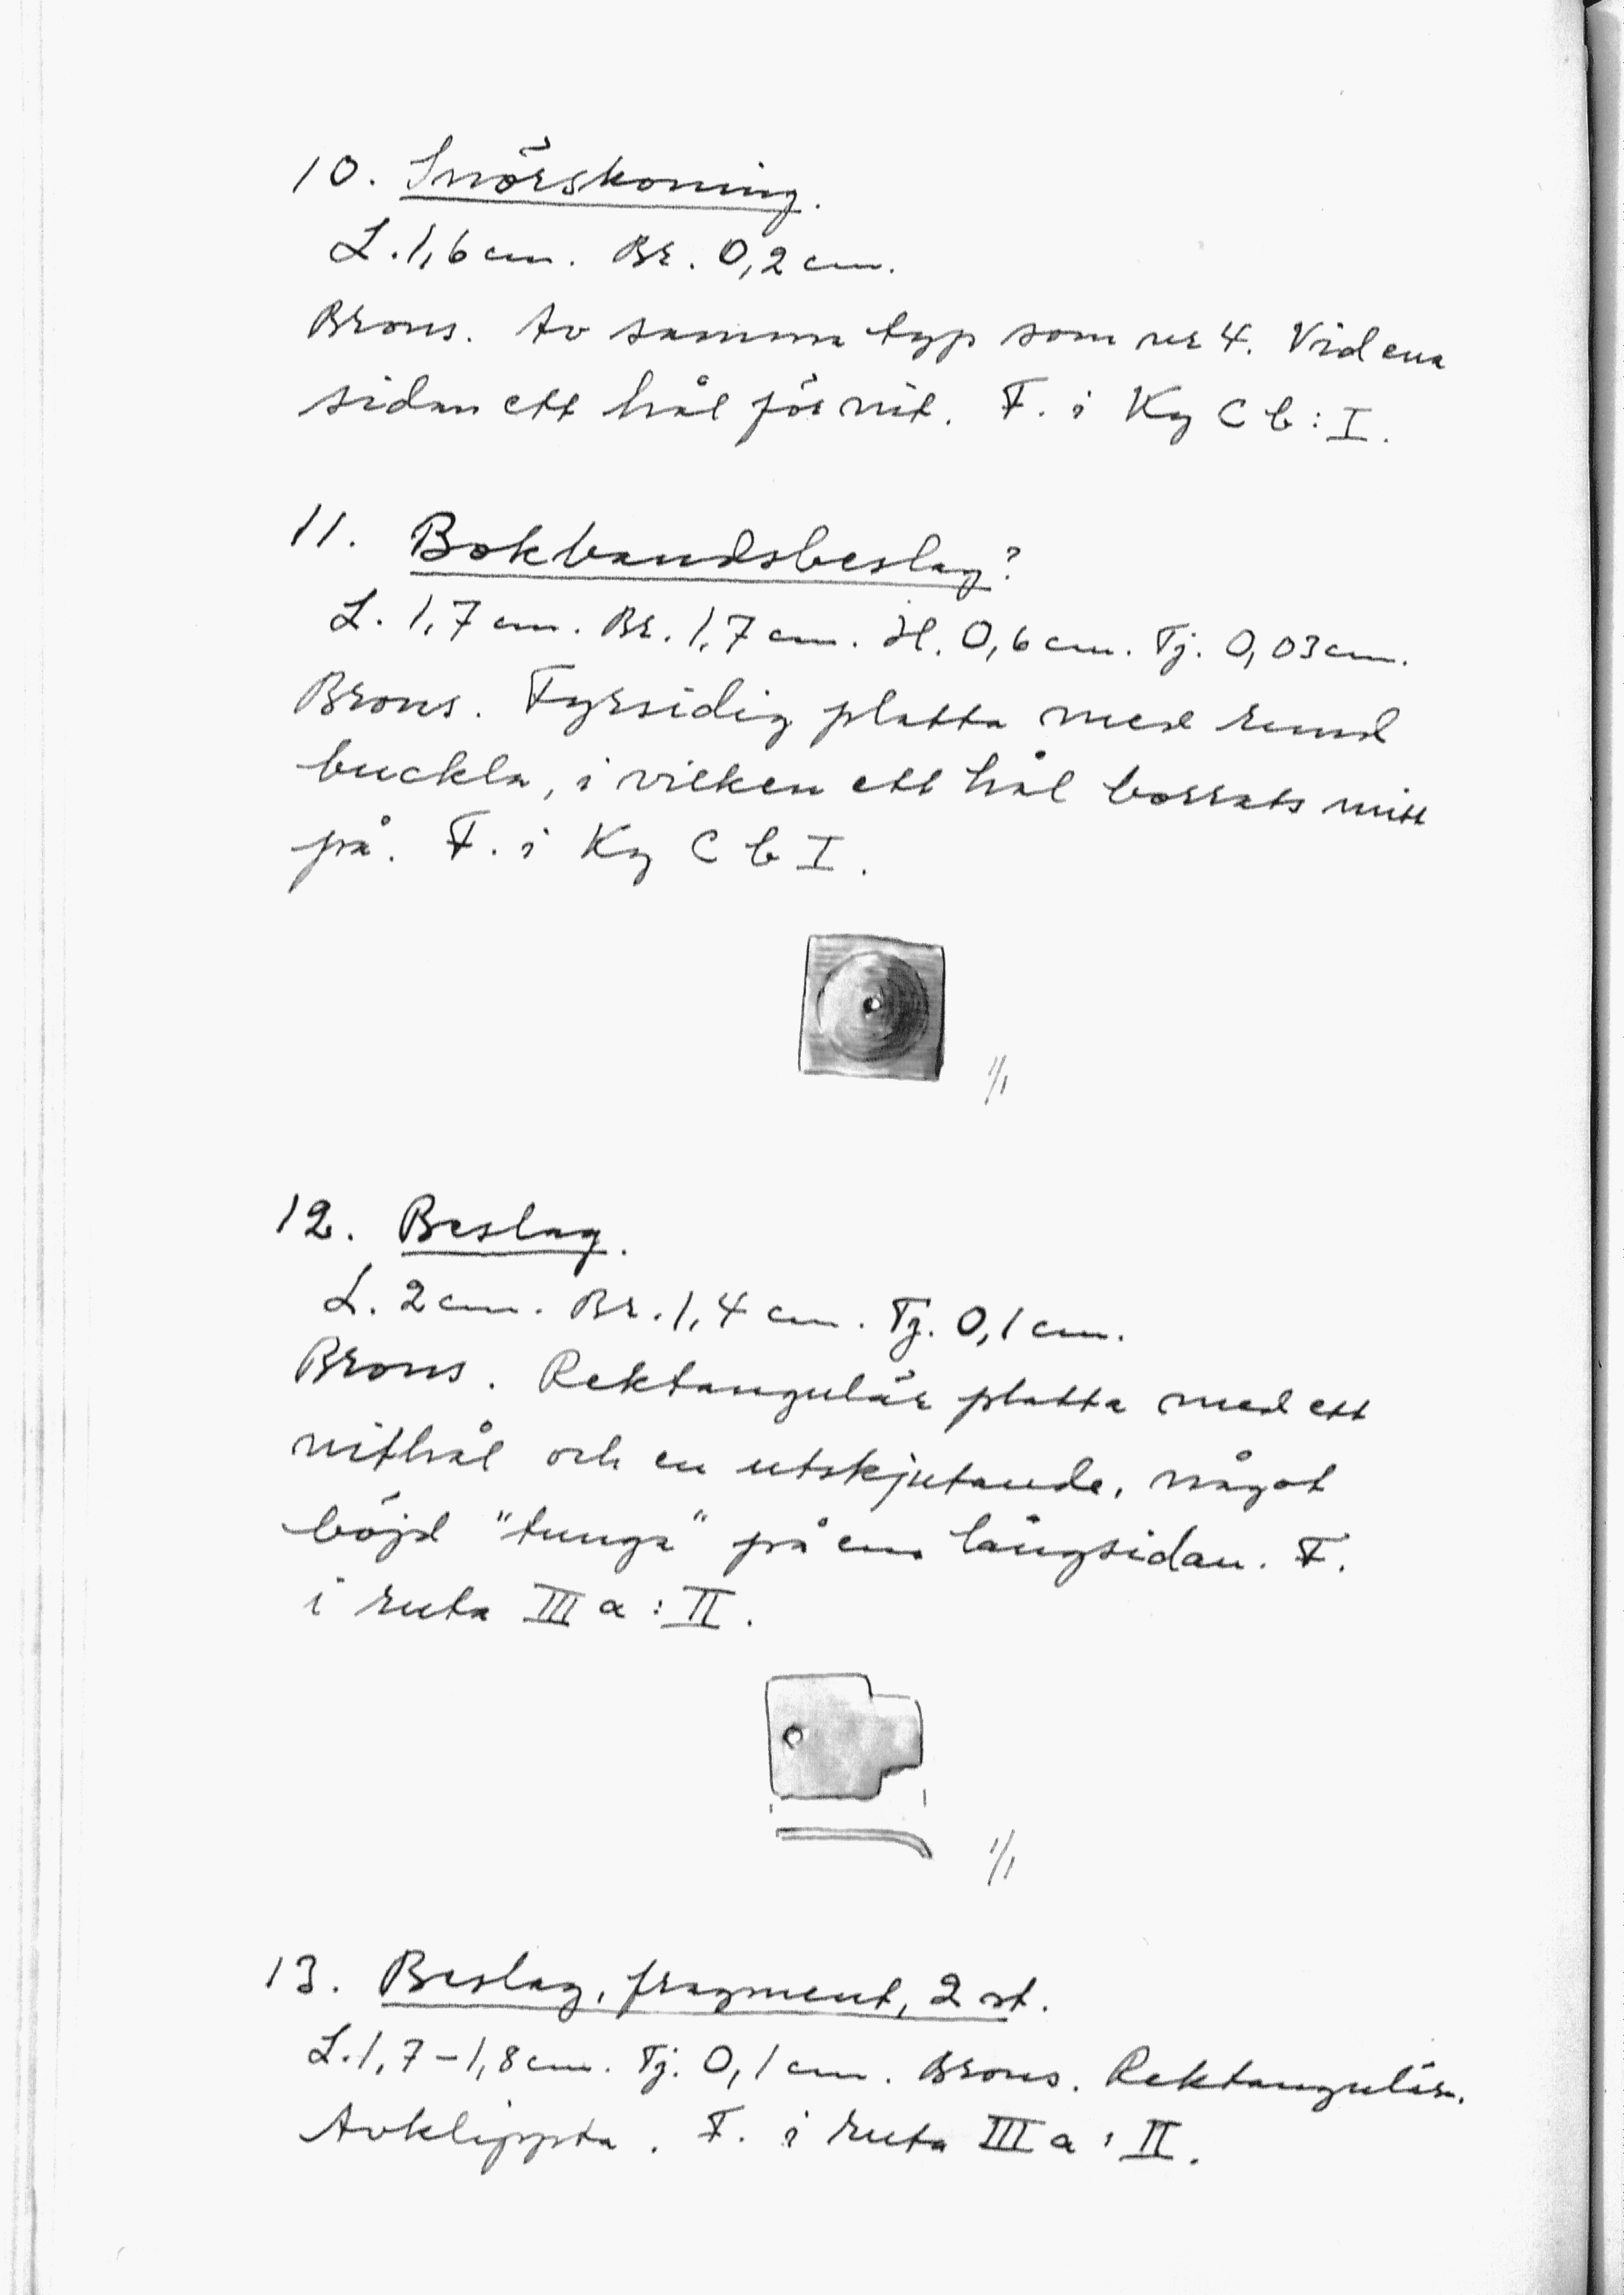 10. Snörskoning.
L. 1,6 cm. Br. 0,2 cm.
Brons. Av samma typ som nr 4. Vid ena
sidan ett hål för nit. F. i Kg C b : I.
11. Bokbandsbeslag?
L. 1,7 cm. Br. 1,7 cm. H. 0,6 cm. Tj. 0,03 cm.
Brons. Fyrsidig platta med rund
buckla, i vilken ett hål borrats mitt
på. F. i Kg C b I.
1/1
12. Beslag.
L. 2 cm. Br. 1,4 cm. Tj. 0,1 cm.
Brons. Rektangulär platta med ett
nithål och en utskjutande, något
böjd "tunga" på ena långsidan. F.
i ruta III a : II.
1/1
13. Beslag, fragment, 2 st.
L. 1,7 – 1,8 cm. Tj. 0,1 cm. Brons. Rektangulära.
Avklippta. F. i ruta III a : II.